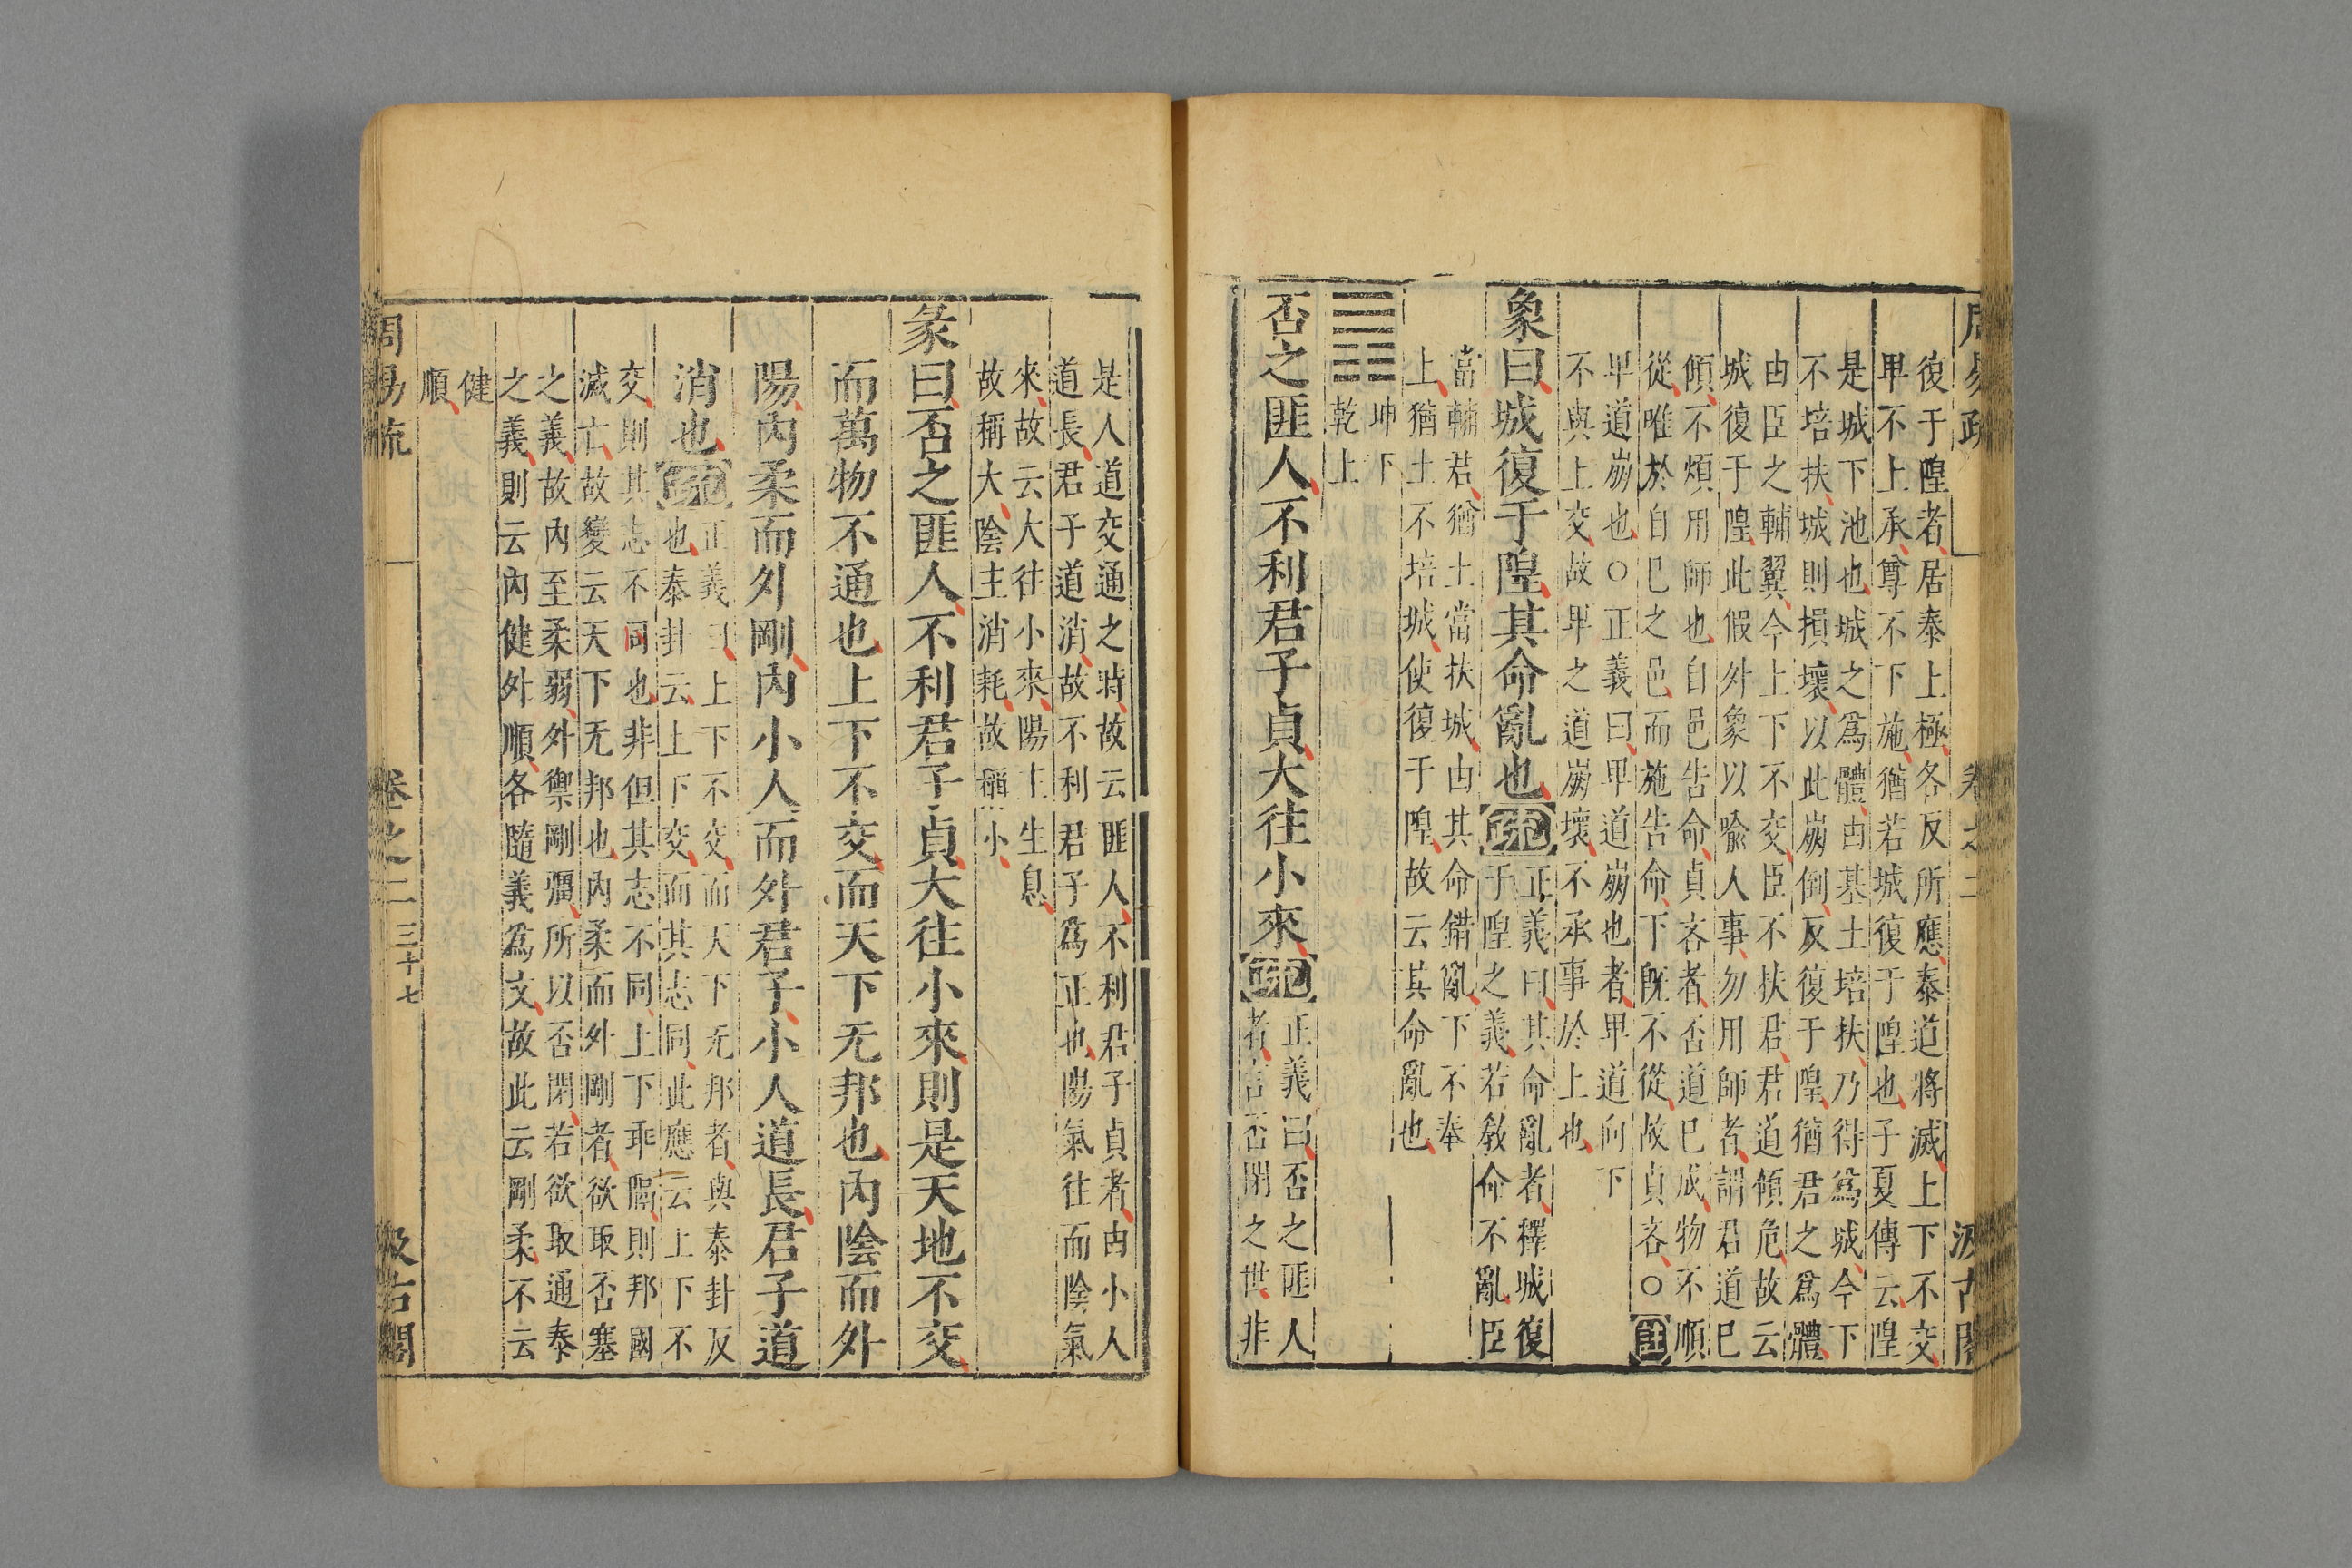 周易疏
卷之二
汲古閣
復于隍者居泰上極各反所應泰道將滅上下不交
卑不上承尊不下施猶若城復于隍也子夏傳云隍
是城下池也城之爲體由基土培扶乃得爲城今下
不培扶城則損壞以此崩倒反復于隍猶君之爲體
由臣之輔翼今上下不交臣不扶君君道傾危故云
城復于隍此假外象以喻人事勿用師者謂君道已
傾不煩用師也自邑告命貞吝者否道已成物不順
從唯於自己之邑而施告命下既不從故貞吝○註
卑道崩也○正義曰卑道崩也者卑道向下
不與上交故卑之道崩壞不承事於上也
象曰城復于隍其命亂也疏
正義曰其命亂者釋城復
于隍之義若教命不亂臣
當輔君猶土當扶城由其命錯亂下不奉
上猶土不培城使復于隍故云其命亂也
坤下
乾上
否之匪人不利君子貞大往小來疏
正義曰否之匪人
者言否閉之世非
是人道交通之時故云匪人不利君子貞者由小人
道長君子道消故不利君子爲正也陽氣往而陰氣
來故云大往小來陽主生息
故稱大陰主消耗故稱小
彖曰否之匪人不利君子貞大往小來則是天地不交
而萬物不通也上下不交而天下无邦也內陰而外
陽內柔而外剛內小人而外君子小人道長君子道
消也疏
正義曰上下不交而天下无邦者與泰卦反
也泰卦云上下交而其志同此應云上下不
交則其志不同也非但其志不同上下乖隔則邦國
滅亡故變云天下无邦也內柔而外剛者欲取否塞
之義故內至柔弱外禦剛彊所以否閉若欲取通泰
之義則云內健外順各隨義爲文故此云剛柔不云
健
順
周易疏
卷之二
三十七
汲古閣